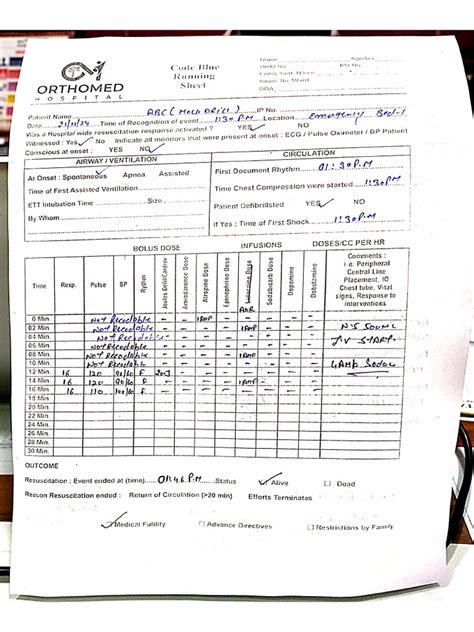 ORTHOMED
HOSPITAL
Code Blue
Running
Sheet
Name Age/Sex
UHID No IPD No.
Consultant Name
Room No/Ward
DOA
Patient Name ABC (MOCK DRILL) IP No.
Date 21/11/24 Time of Recognition of event 1:30 P.M Location Emergency Bed-1
Was a Hospital wide resuscitation response activated ? YES NO
Witnessed : Yes No Indicate all monitors that were present at onset : ECG / Pulse Oximeter / BP Patient
Conscious at onset : YES NO
AIRWAY / VENTILATION
At Onset : Spontaneous Apnea Assisted
Time of First Assisted Ventilation
ETT Intubation Time Size
By Whom
CIRCULATION
First Document Rhythm 01:30 P.M
Time Chest Compression were started 1:30 P.M
Patient Defibrillated YES NO
If Yes : Time of First Shock 1:30 P.M
BOLUS DOSE INFUSIONS DOSES/CC PER HR
Time Resp. Pulse BP Rythm Joules Defib/Cardiov Amiodarone Dose Atropine Dose Epinephrine Dose Lidocaine Dose Sodabicarb Dose Dopamine Dobutamine
Comments :
i.e. Peripheral
Central Line
Placement, IO
Chest tube, Vital
signs, Response to
interventions
ADR
0 Min. Not Recodable - - 1AMP - - - -
02 Min. Not Recodable - - - - 1AMP - - - NS 500ML
04 Min. Not Recodable - - - - - - - - IV START.
06 Min. Not Recodable - - - -
08 Min. Not Recodable - - - - 1AMP - - -
10 Min. Not Recodable - - - - - - - - 4AMP Sodac
12 Min. 16 120 90/60 F 200J - - - - - - -
14 Min. 16 120 90/60 F - - - - 1AMP - - -
16 Min. 16 110 100/60 F - - - - - - - -
18 Min.
20 Min.
22 Min.
24 Min.
26 Min.
28 Min.
30 Min.
OUTCOME
Resuscitation : Event ended at (time) 01:46 P.M Status Alive Dead
Reason Resuscitation ended : Return of Circulation (>20 min) Efforts Terminates
Medical Futility Advance Directives Restrictions by Family